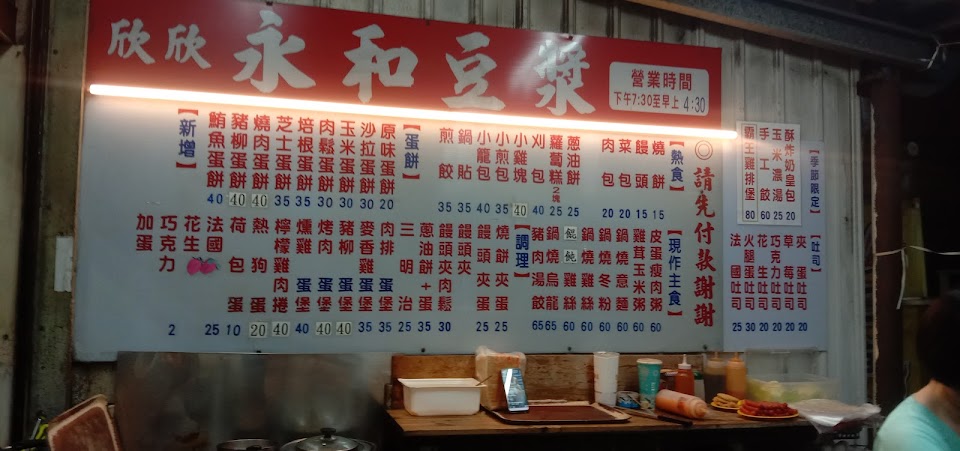 欣欣 永和豆漿
營業時間
下午7:30至早上 4:30
【季節限定】
酥炸奶皇包 20
玉米濃湯 25
手工餃 60
霸王雞排堡 80
【吐司】
夾蛋吐司 20
草莓吐司 20
巧克力吐司 20
花生吐司 20
火腿蛋吐司 30
法國吐司 25
◎請先付款謝謝
【熱食】
燒餅 15
饅頭 15
菜包 20
肉包 20
蔥油餅 25
蘿蔔糕2塊 25
刈包 40
小雞塊 40
小煎包 35
小龍包 40
鍋貼 35
煎餃 35
【蛋餅】
原味蛋餅 20
沙拉蛋餅 30
玉米蛋餅 30
肉鬆蛋餅 30
培根蛋餅 35
芝士蛋餅 35
燒肉蛋餅 40
豬柳蛋餅 40
鮪魚蛋餅 40
【新增】
【現作主食】
皮蛋瘦肉粥 60
雞茸玉米粥 60
鍋燒意麵 60
鍋燒冬粉 60
鍋燒雞絲 60
餛飩雞絲 60
鍋燒烏龍 65
豬肉湯餃 65
【調理】
燒餅夾蛋 25
饅頭夾蛋 25
饅頭夾
饅頭夾肉鬆 30
蔥油餅+蛋 35
三明治 25
肉排蛋堡 35
麥香雞蛋堡 35
豬柳蛋堡 40
烤肉蛋堡 40
燻雞蛋堡 40
檸檬雞肉捲 40
熱狗 20
荷包蛋 10
法國 25
花生
巧克力
加蛋 2